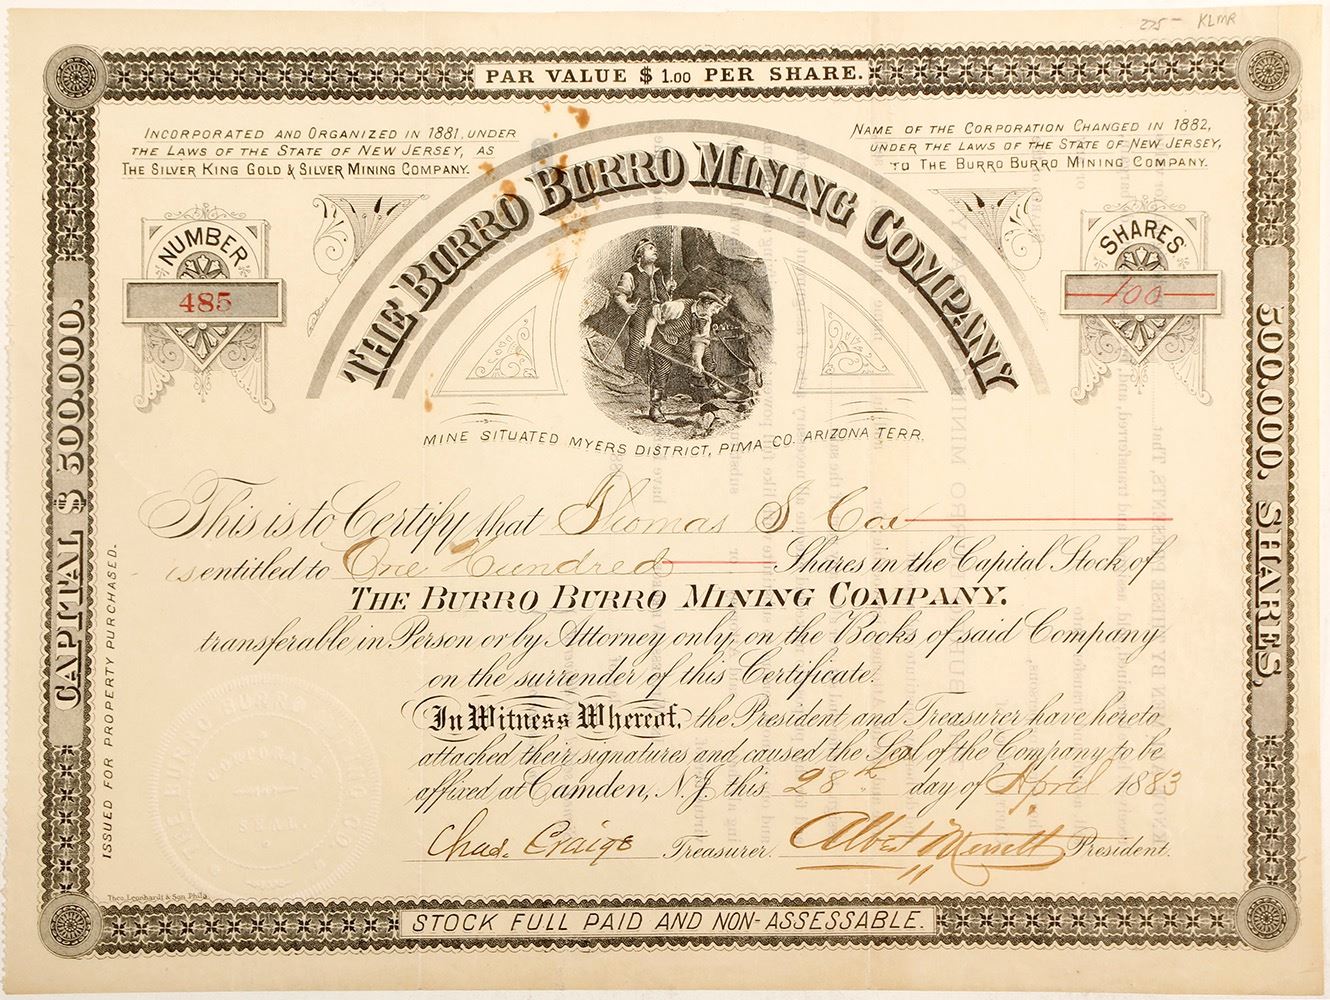 275 - KLMR
PAR VALUE $ 1.00 PER SHARE.
INCORPORATED AND ORGANIZED IN 1881, UNDER
THE LAWS OF THE STATE OF NEW JERSEY, AS
THE SILVER KING GOLD & SILVER MINING COMPANY.
NAME OF THE CORPORATION CHANGED IN 1882,
UNDER THE LAWS OF THE STATE OF NEW JERSEY,
TO THE BURRO BURRO MINING COMPANY.
NUMBER
485
THE BURRO BURRO MINING COMPANY
SHARES
100
MINE SITUATED MYERS DISTRICT, PIMA CO. ARIZONA TERR.
CAPITAL $ 500.000.
500.000. SHARES.
ISSUED FOR PROPERTY PURCHASED.
This is to Certify that Thomas S. Cox
is entitled to One Hundred Shares in the Capital Stock of
THE BURRO BURRO MINING COMPANY.
transferable in Person or by Attorney only, on the Books of said Company
on the surrender of this Certificate.
In Witness Whereof, the President and Treasurer have hereto
attached their signatures and caused the Seal of the Company to be
affixed at Camden, N.J. this 28th day of April 1883
Chas. Craige Treasurer. Albert Merritt President.
THE BURRO BURRO MINING CO
CORPORATE
SEAL
Theo. Leonhardt & Son, Phila.
STOCK FULL PAID AND NON-ASSESSABLE.